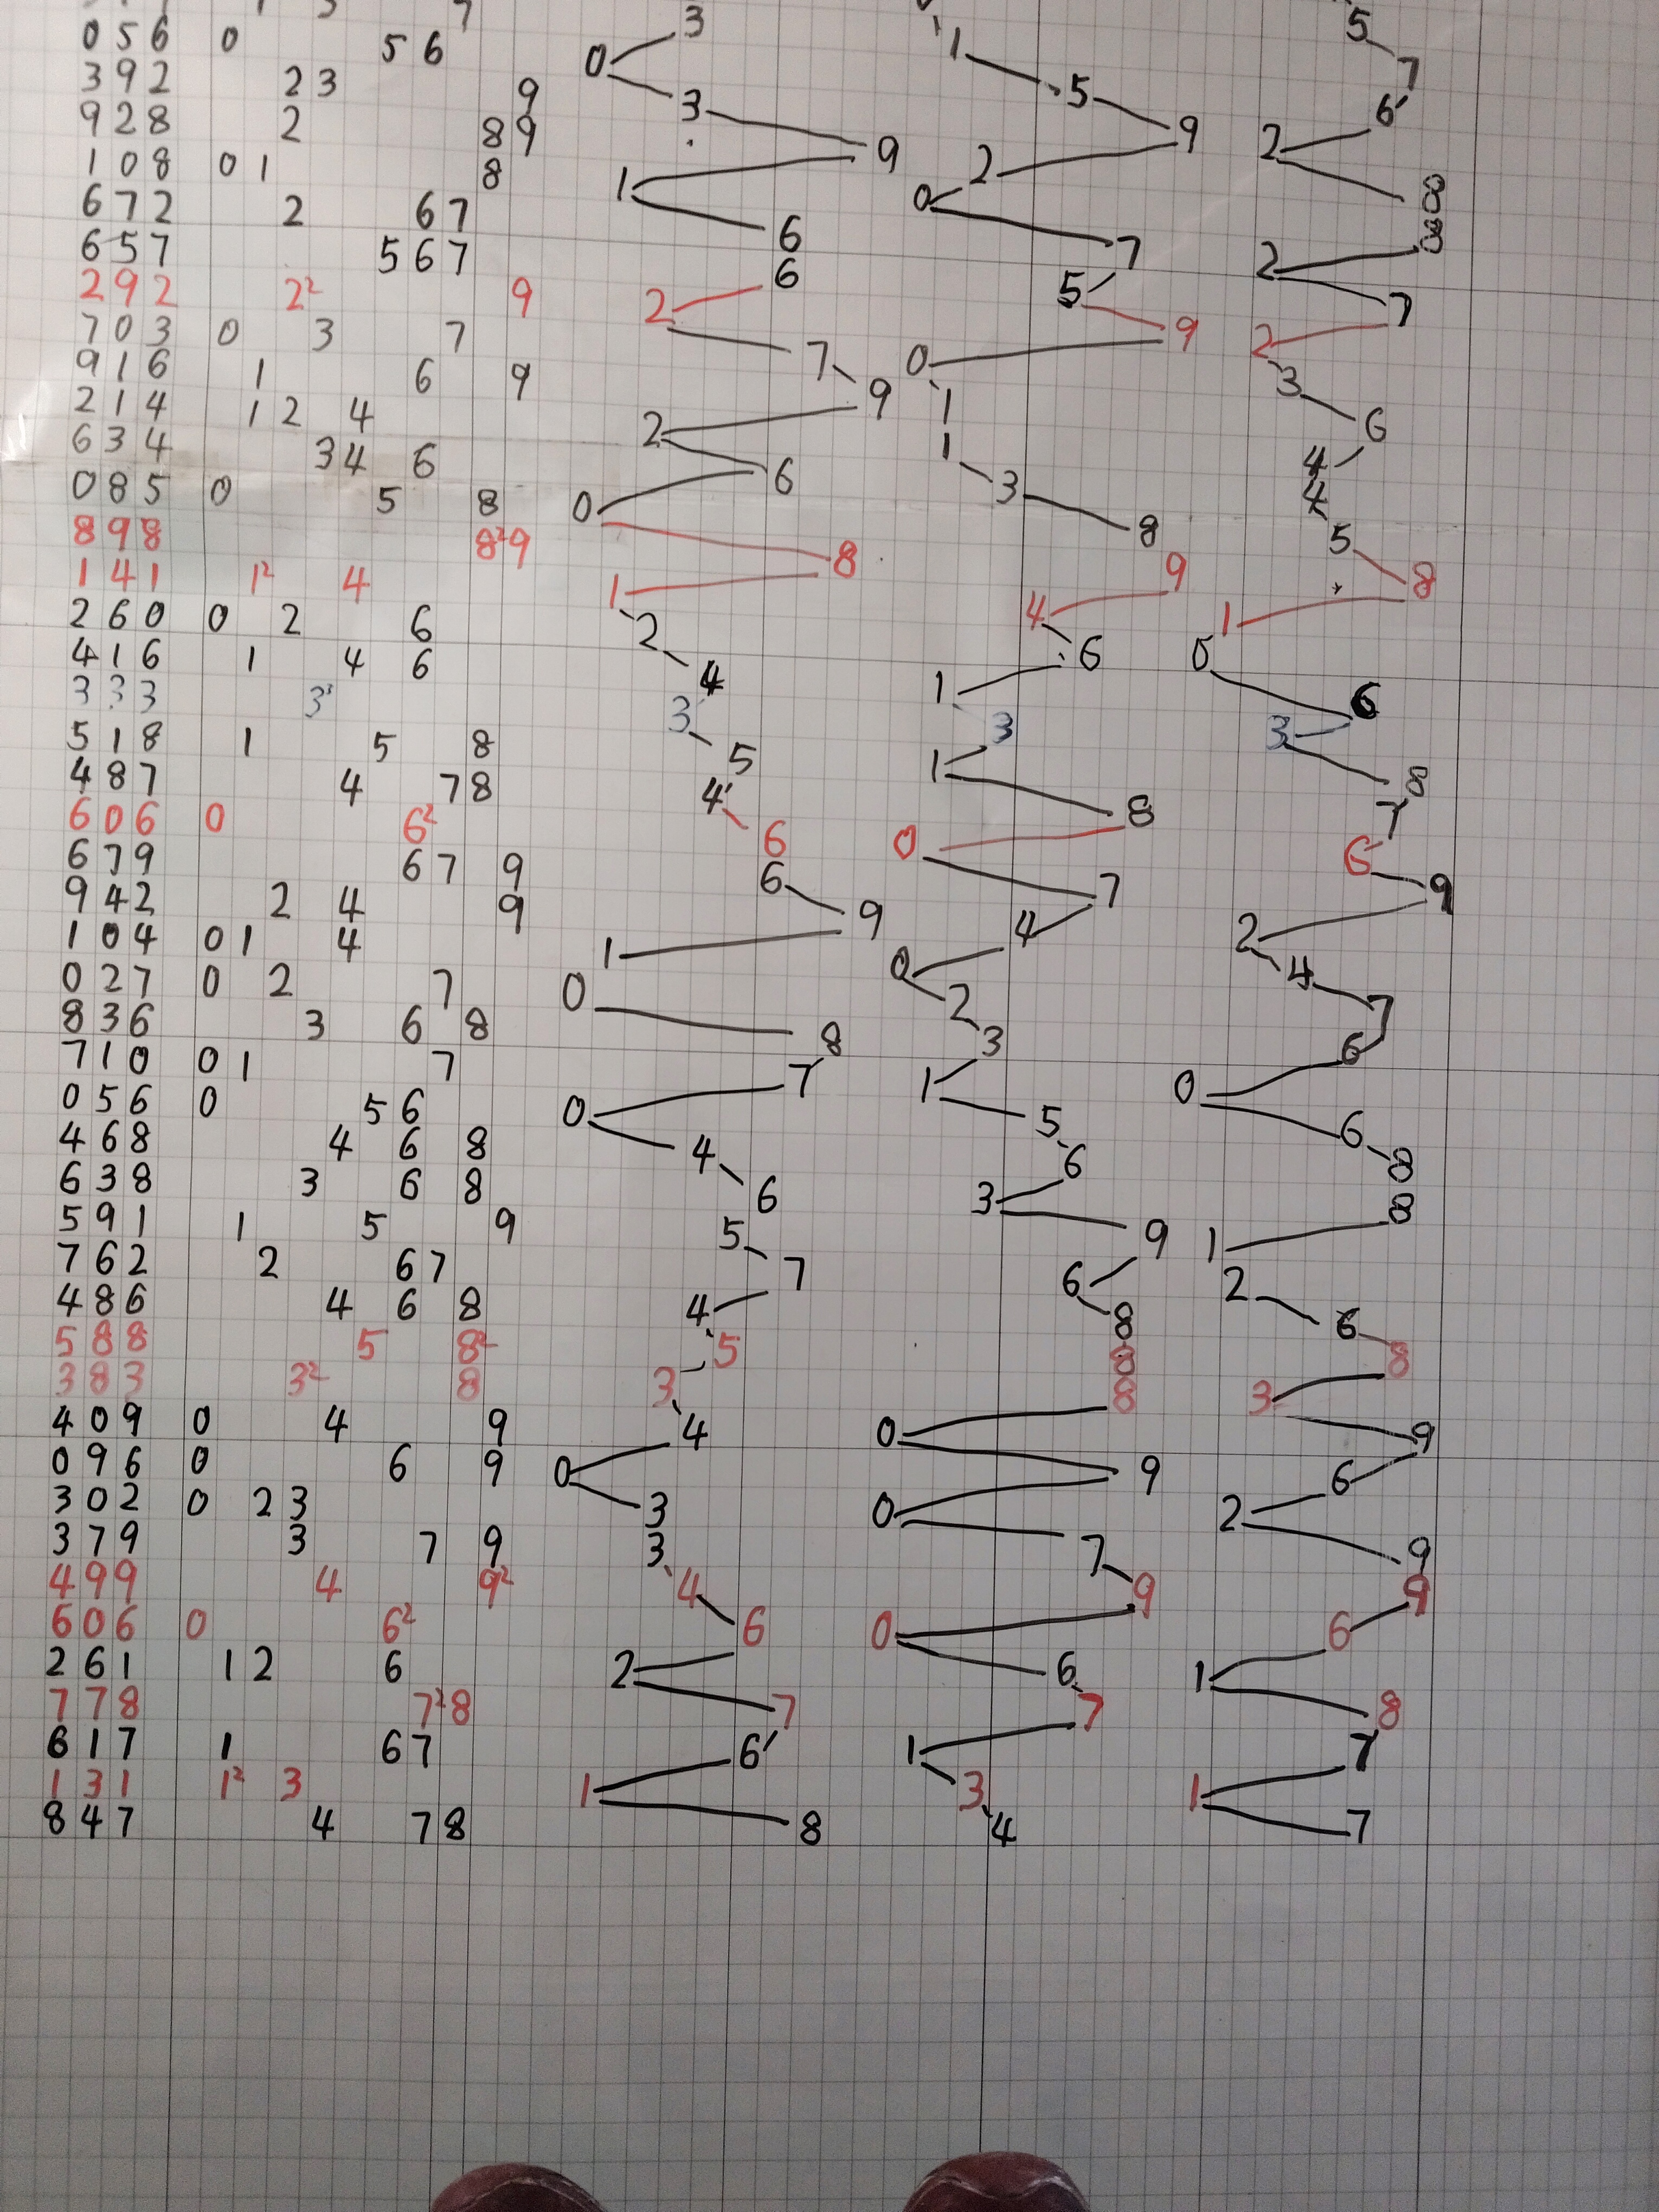 056 0 56 0 3 1 5
392 23 9 3 5 7
928 2 89 9 9 6
108 01 8 1 2 2
672 2 67 6 0 8
657 567 6 7 8
292 2² 9 2 5 2
703 0 3 7 7 9 7
916 1 6 9 9 0 2
214 12 4 2 1 3
634 34 6 6 1 6
085 0 5 8 0 3 4
898 8²9 8 8 4
141 1² 4 1 9 5
260 0 2 6 2 4 8
416 1 4 6 4 6 1
333 3³ 3 1 0
518 1 5 8 5 3 6
487 4 78 4 1 3
606 0 6² 6 8 8
679 67 9 6 0 7
942 2 4 9 9 7 6
104 01 4 1 4 9
027 0 2 7 0 0 2
836 3 6 8 8 2 4
710 01 7 7 3 7
056 0 56 0 1 6
468 4 6 8 4 5 0
638 3 6 8 6 6 6
591 1 5 9 5 3 8
762 2 67 7 9 8
486 4 6 8 4 6 1
588 5 8² 5 8 2
383 3² 8 3 8 6
409 0 4 9 4 8 8
096 0 6 9 0 0 3
302 0 23 3 9 9
379 3 7 9 3 0 6
499 4 9² 4 7 2
606 0 6² 6 9 9
261 12 6 2 0 9
778 7²8 7 6 6
617 1 67 6 7 1
131 1² 3 1 1 8
847 4 78 8 3 7
4 1
7